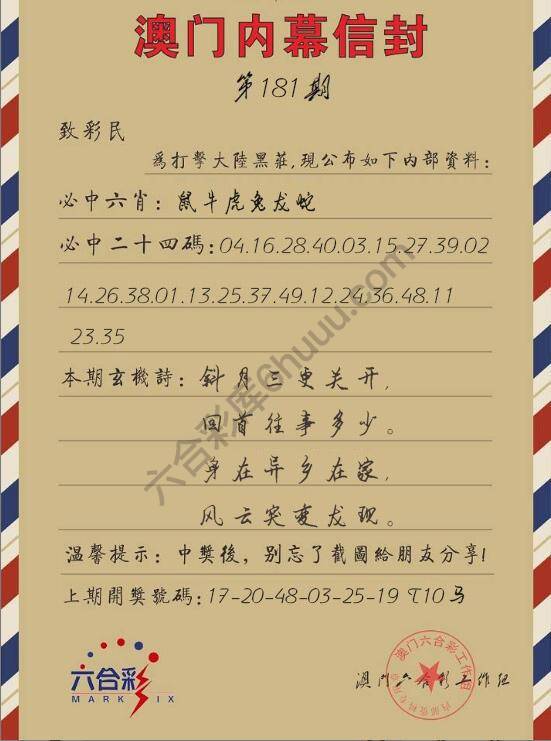 澳门内幕信封
第181期
致彩民
為打擊大陸黑莊,現公布如下内部資料:
必中六肖: 鼠牛虎兔龙蛇
必中二十四碼:04.16.28.40.03.15.27.39.02
14.26.38.01.13.25.37.49.12.24.36.48.11
23.35
本期玄機詩: 斜月三更关开,
回首往事多少。
身在异乡在家,
风云突变龙现。
温馨提示:中獎後,别忘了截圖給朋友分享!
上期開獎號碼:17-20-48-03-25-19 T10马
六合彩
MARK SIX
澳门六合彩工作组
澳门六合彩工作组
六合彩库@huuu.com